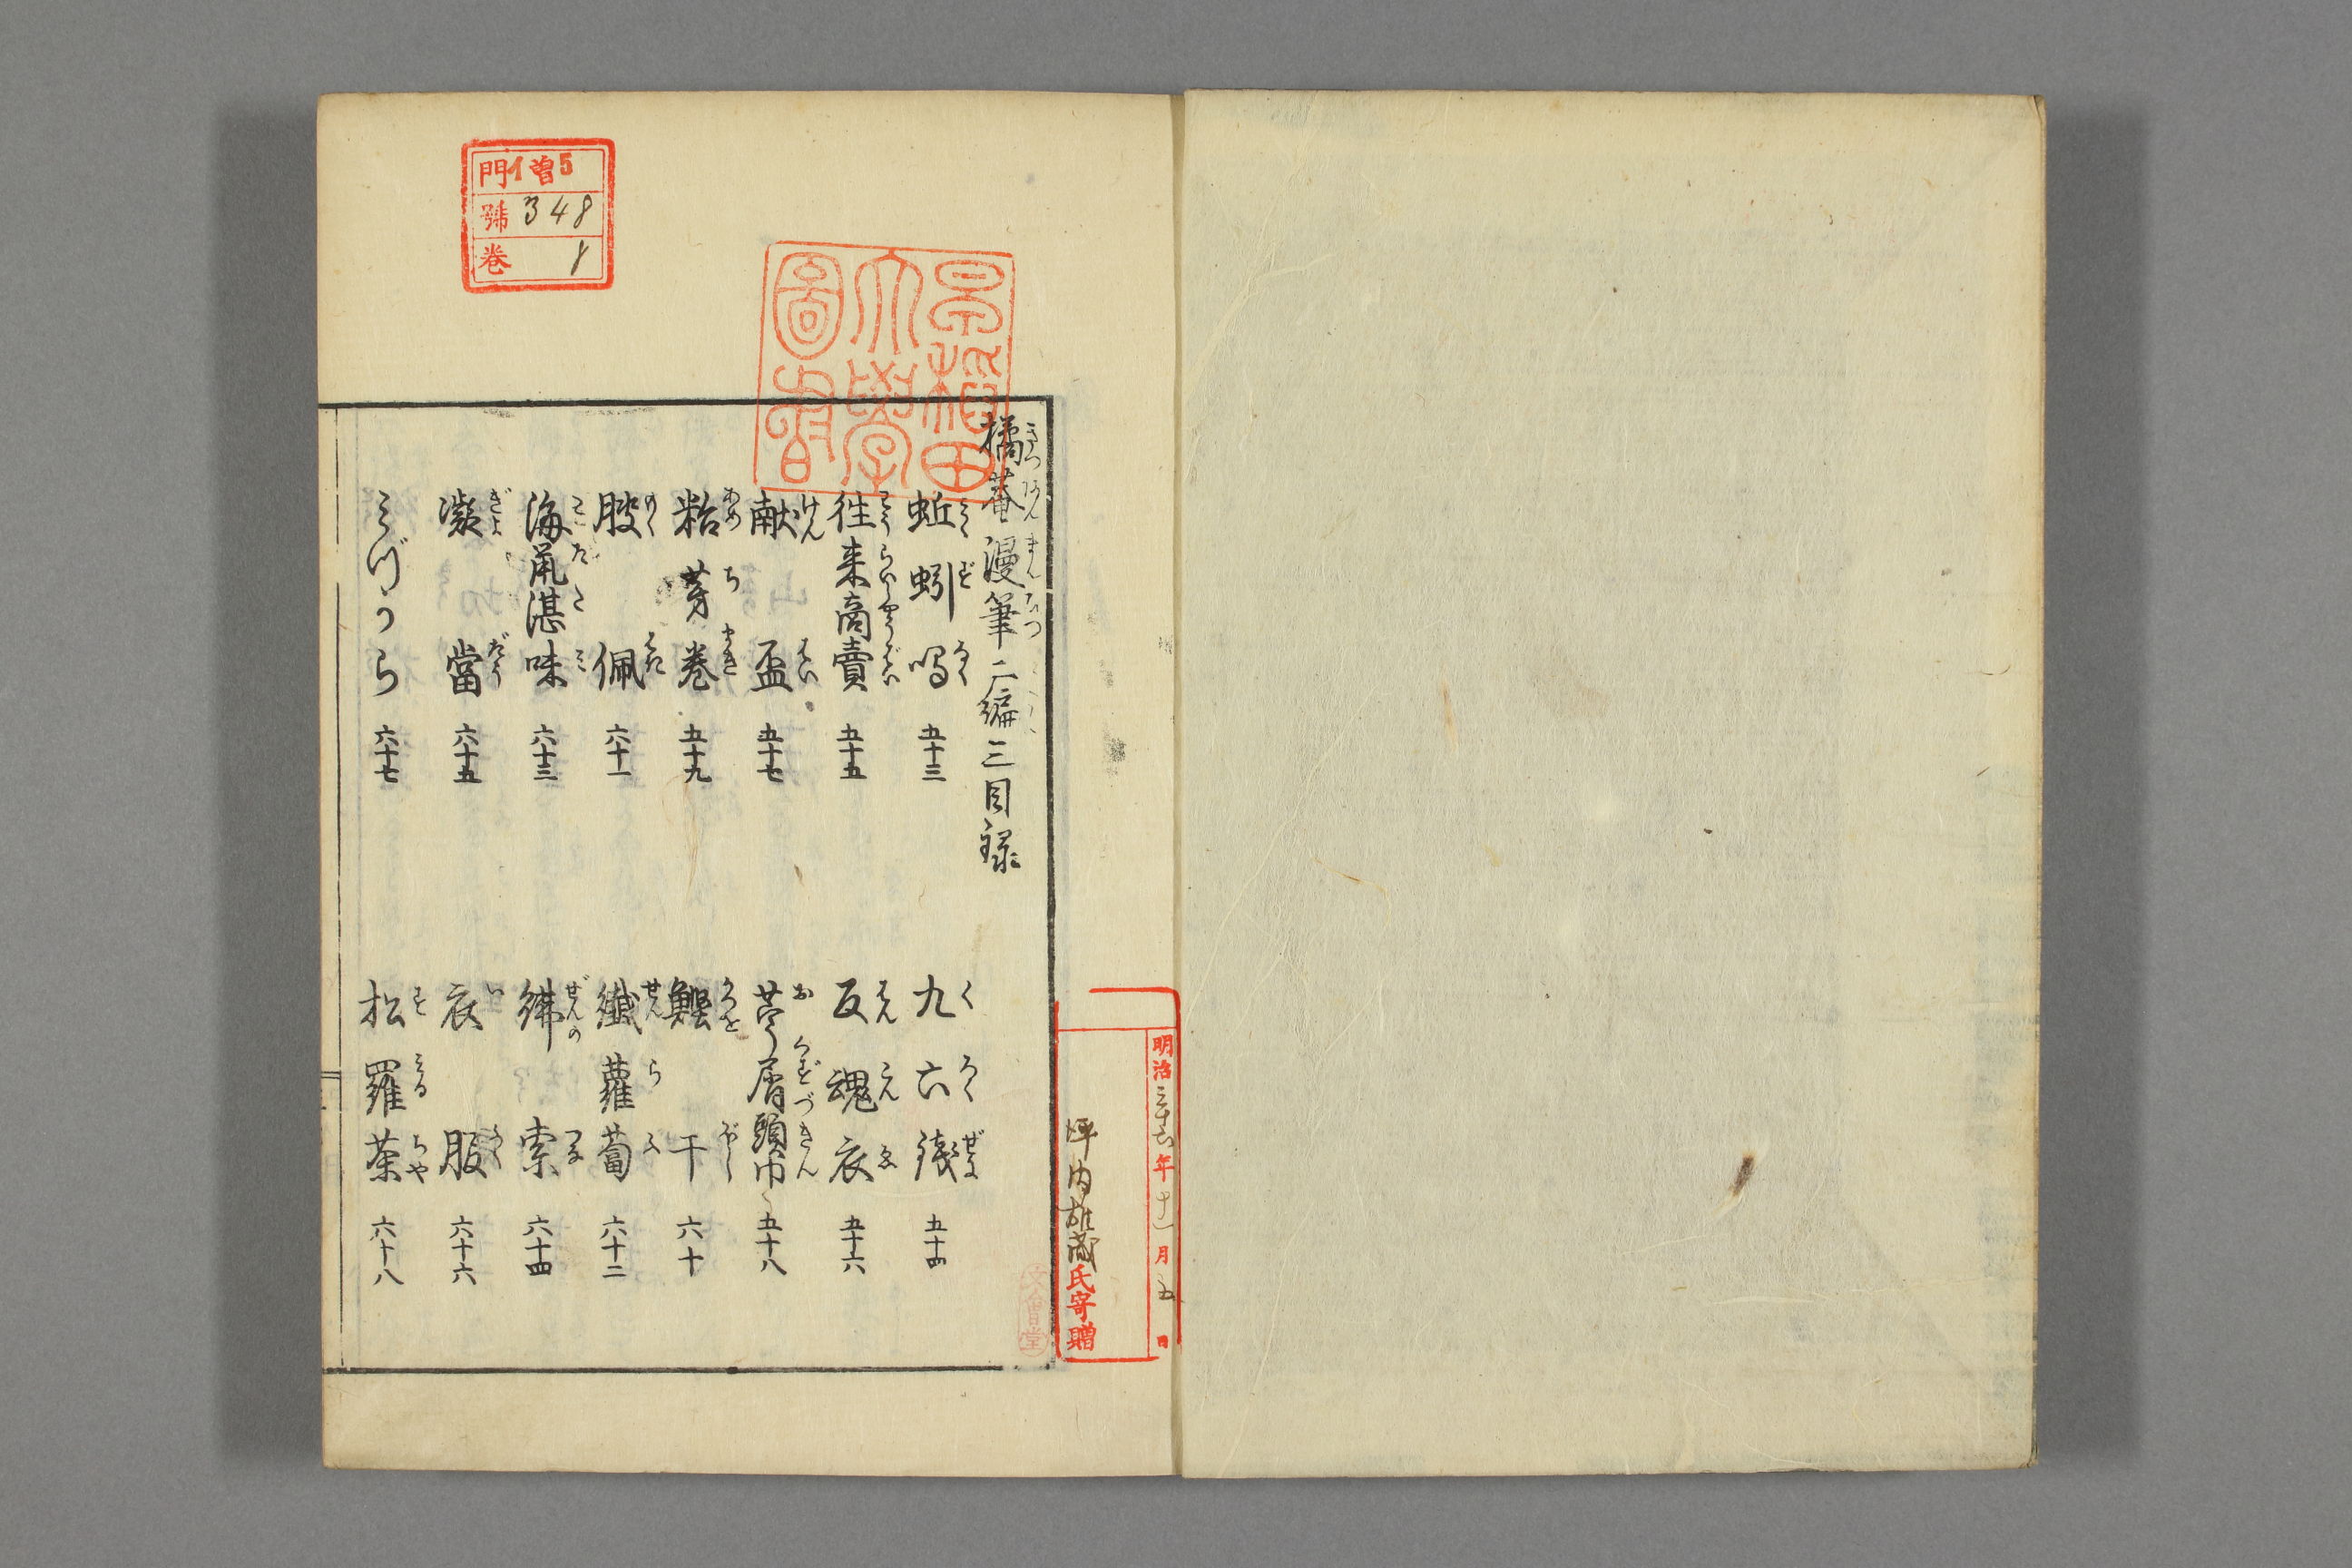 明治三十六年十一月五日
坪内雄蔵氏寄贈
早稲田大學圖書
門イ曽5
號348
巻8
橘菴漫筆二編三目録
蚯蚓鳴 五十三
九六錢 五十四
徃来商賣 五十五
反魂衣 五十六
献盃 五十七
苧屑頭巾 五十八
粘芽巻 五十九
鰹干 六十
佩 六十一
纎蘿蔔 六十二
海甞湛味 六十三
索 六十四
凝當 六十五
衣服 六十六
みづから 六十七
松羅茶 六十八
文會堂